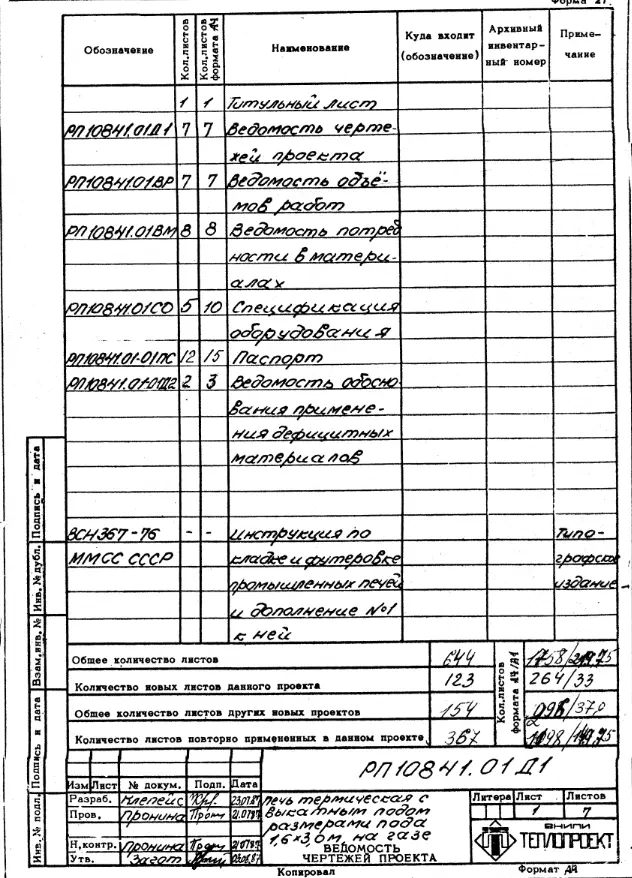 Форма 27
Обозначение Кол.листов Кол.листов формата А4 Наименование Куда входит (обозначение) Архивный инвентар-ный номер Приме-чание
1 1 Титульный лист
РП10841.01Д1 7 7 Ведомость черте-
жей проекта
РП10841.01ВР 7 7 Ведомость объё-
мов работ
РП10841.01ВМ 8 8 Ведомость потреб
ности в матери-
алах
РП10841.01СО 5 10 Спецификация
оборудования
РП10841.01-01ПС 12 15 Паспорт
РП10841.01-01Д2 2 3 Ведомость обосно
вания примене-
ния дефицитных
материалов
ВСН367-76 - - Инструкция по Типо-
ММСС СССР кладке и футеровке графское
промышленных печей издание
и дополнение №1
к ней
Общее количество листов 644
Количество новых листов данного проекта 123 264/33
Общее количество листов других новых проектов 154
Количество листов повторно примененных в данном проекте 367
Кол.листов формата А4/А1
РП10841.01Д1
Изм Лист № докум. Подп. Дата
Разраб. Клепейс 23.07.87
Пров. Пронина 21.07.87
Н.контр. Пронина 21.07.87
Утв. Загот
Печь термическая с
выкатным подом
размерами пода
1,6×3,6м на газе
ВЕДОМОСТЬ
ЧЕРТЕЖЕЙ ПРОЕКТА
Литера Лист Листов
1 7
ВНИПИ
ТЕПЛОПРОЕКТ
Копировал Формат А4
Инв.№ подл. Подпись и дата Взам.инв.№ Инв.№ дубл. Подпись и дата